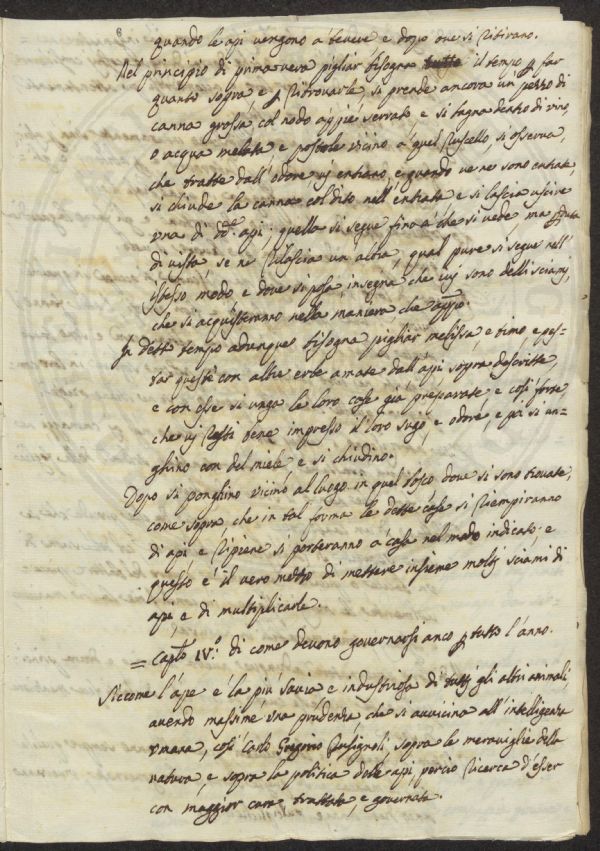 8
quando le api vengono à bevere e dopo ove si ritirano.
Nel principio di primavera pigliar bisogna tutto il tempo p far
quanto sopra e p ritrovarle si prende ancora un pezzo di
canna grossa, col nodo appiè serrato e si bagna dentro di vino,
o acqua melata, e postole vicino à quel ruscello, si osserva,
che tratte dall'odore ivj entrano, e quando ve ne sono entrate,
si chiude la canna col dito nell'entrata e si lascia uscire
una di d.e api, quella si segue fino à che si vede, ma
di vista, se ne rilascia un altra, qual pure si segue nell'
istesso modo, e dove si posa, insegna che ivj sono delli sciamj,
che si acquisteranno nella maniera che appo.
In detto tempo adunque bisogna pigliar melissa, e timo, e pes-
tar queste con altre erbe amate dall'api, sopra descritte,
e con esse si unga le loro case già preparate, e così forte,
che ivj resti bene impresso il loro sugo, e odore, e poi si un-
ghino con del miele, e si chiudino.
Dopo si ponghino vicino al luogo in quel bosco dove si sono trovate,
come sopra, che in tal forma le dette case si riempiranno
di api, e ripiene si porteranno à casa nel modo indicato; e
questo è il vero modo di mettere insieme moltj sciami di
api, e di multiplicarle.
= Caplo IV.o di come devono governarsi anco p tutto l'anno.
Siccome l'ape è la più savia e industriosa di tuttj gli altri animali,
avendo massime una prudenza, che si avvicina all'intelligenza
umana, così Carlo Gregorio Rosignoli, sopra le meraviglie della
natura, e sopra la politica delle api, perciò ricerca d'esser
con maggior cura trattata, e governata.